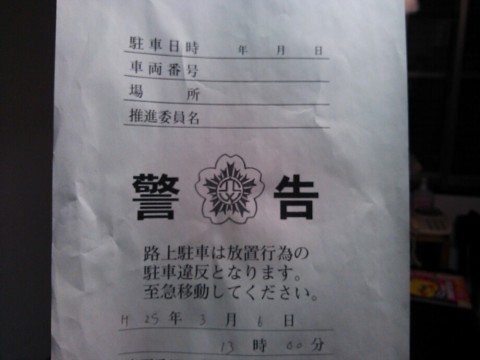 駐車日時 年 月 日
車両番号
場 所
推進委員名
警 告
路上駐車は放置行為の
駐車違反となります。
至急移動してください。
H 25年 3月 6日
13時 00分